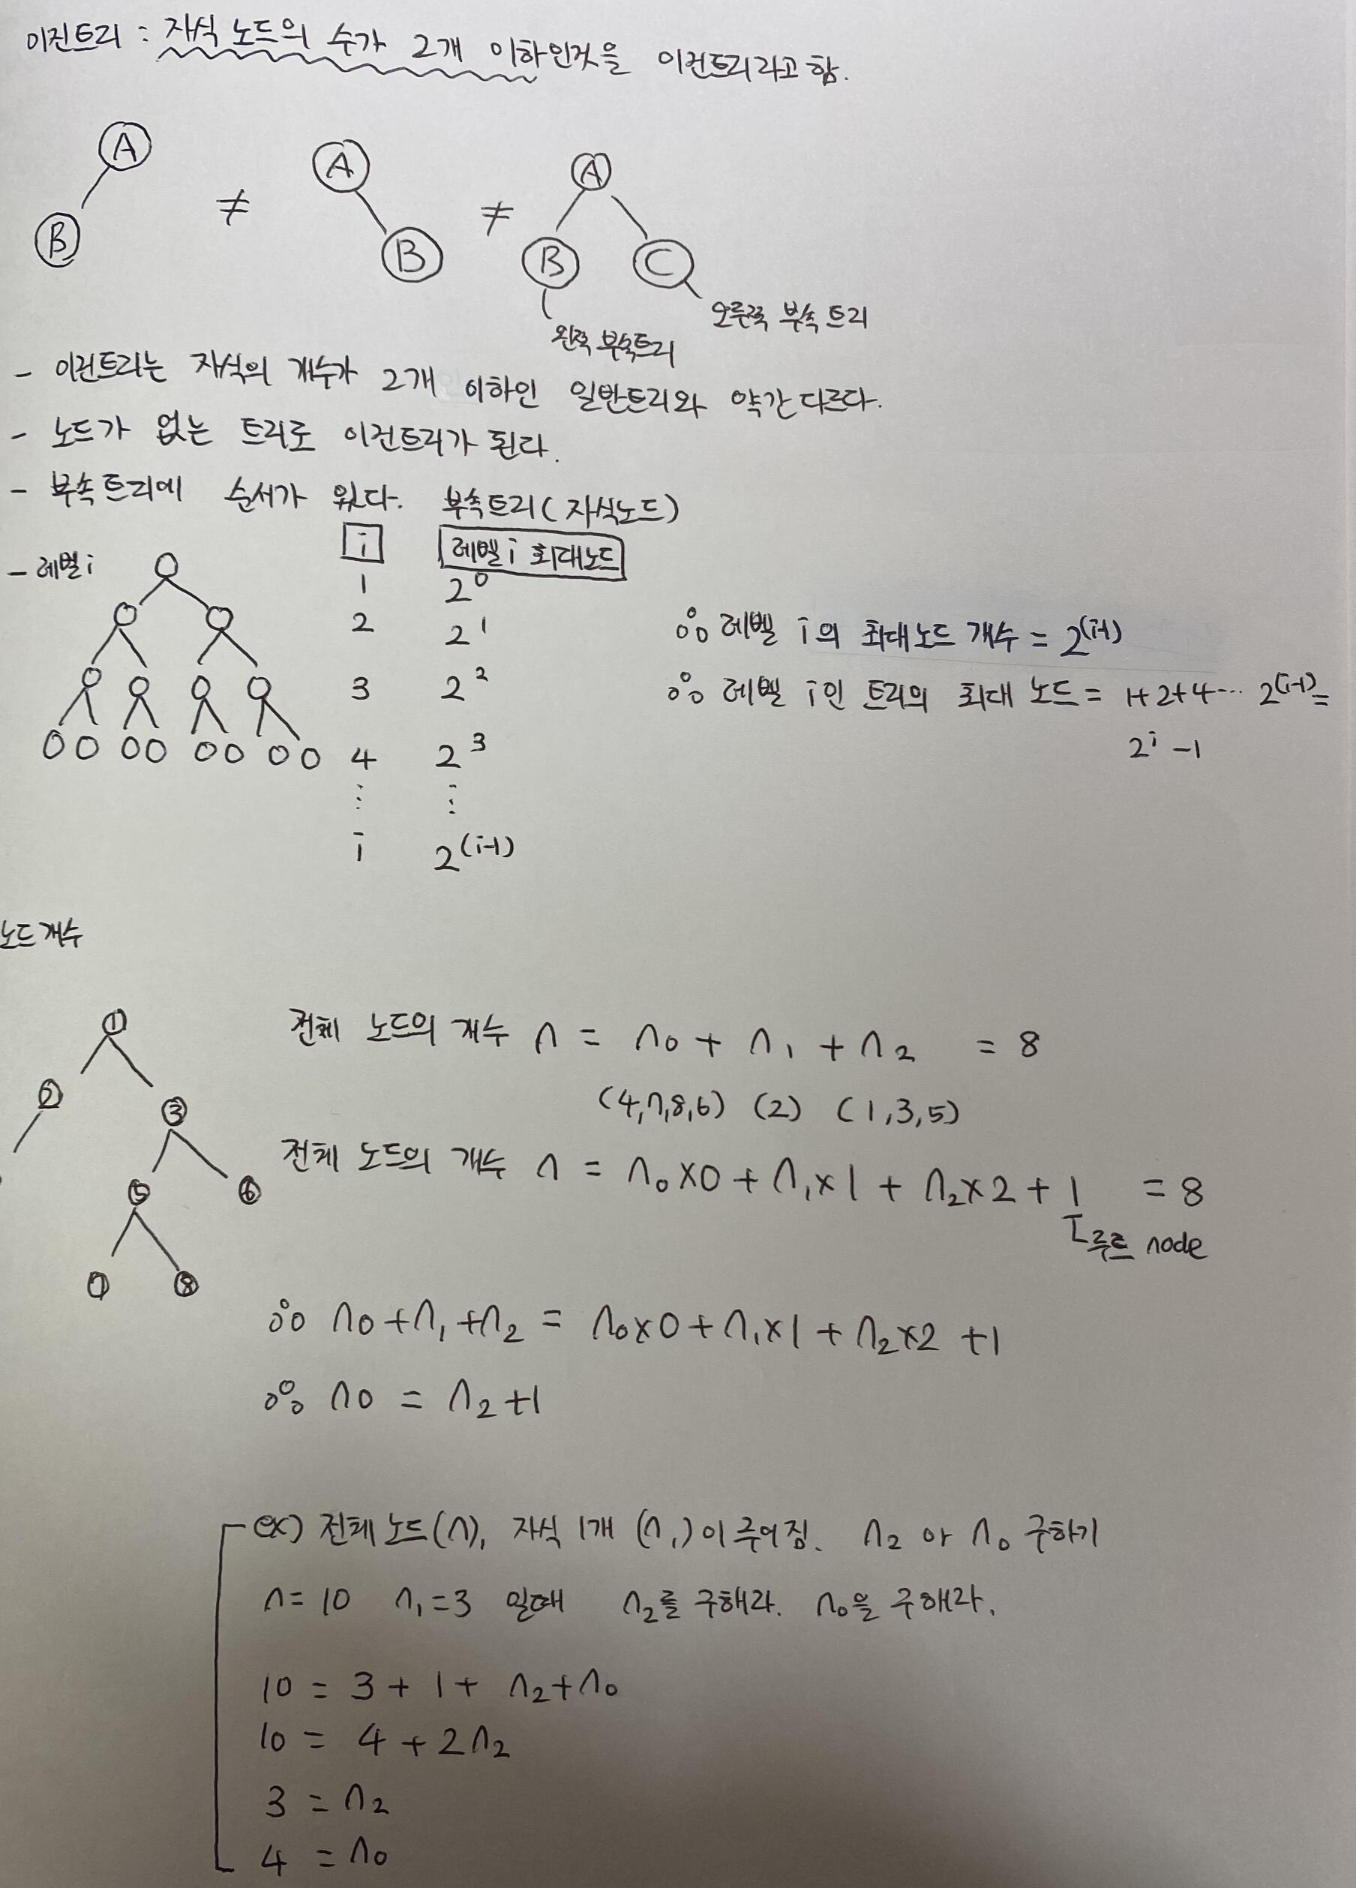 이진트리 : 자식 노드의 수가 2개 이하인것을 이진트리라고 함.
A A A
≠ ≠
B B B C
오른쪽 부속 트리
왼쪽 부속트리
- 이진트리는 자식의 개수가 2개 이하인 일반트리와 약간 다르다.
- 노드가 없는 트리로 이진트리가 된다.
- 부속트리에 순서가 있다. 부속트리(자식노드)
- 레벨 i
i 레벨 i 최대노드
1 2^0
2 2^1
3 2^2
4 2^3
⋮ ⋮
i 2^(i-1)
∴ 레벨 i의 최대노드 개수 = 2^(i-1)
∴ 레벨 i인 트리의 최대 노드 = 1+2+4… 2^(i-1) =
2^i -1
노드 개수
1
2
3
5 6
7 8
전체 노드의 개수 n = n0 + n1 + n2 = 8
(4,7,8,6) (2) (1,3,5)
전체 노드의 개수 n = n0×0 + n1×1 + n2×2 + 1 = 8
루트 node
∴ n0+n1+n2 = n0×0+n1×1+n2×2 +1
∴ n0 = n2+1
ex) 전체노드(n), 자식 1개 (n1)이 주어짐. n2 or n0 구하기
n=10 n1=3 일때 n2를 구해라. n0을 구해라.
10 = 3 + 1 + n2+n0
10 = 4 + 2n2
3 = n2
4 = n0